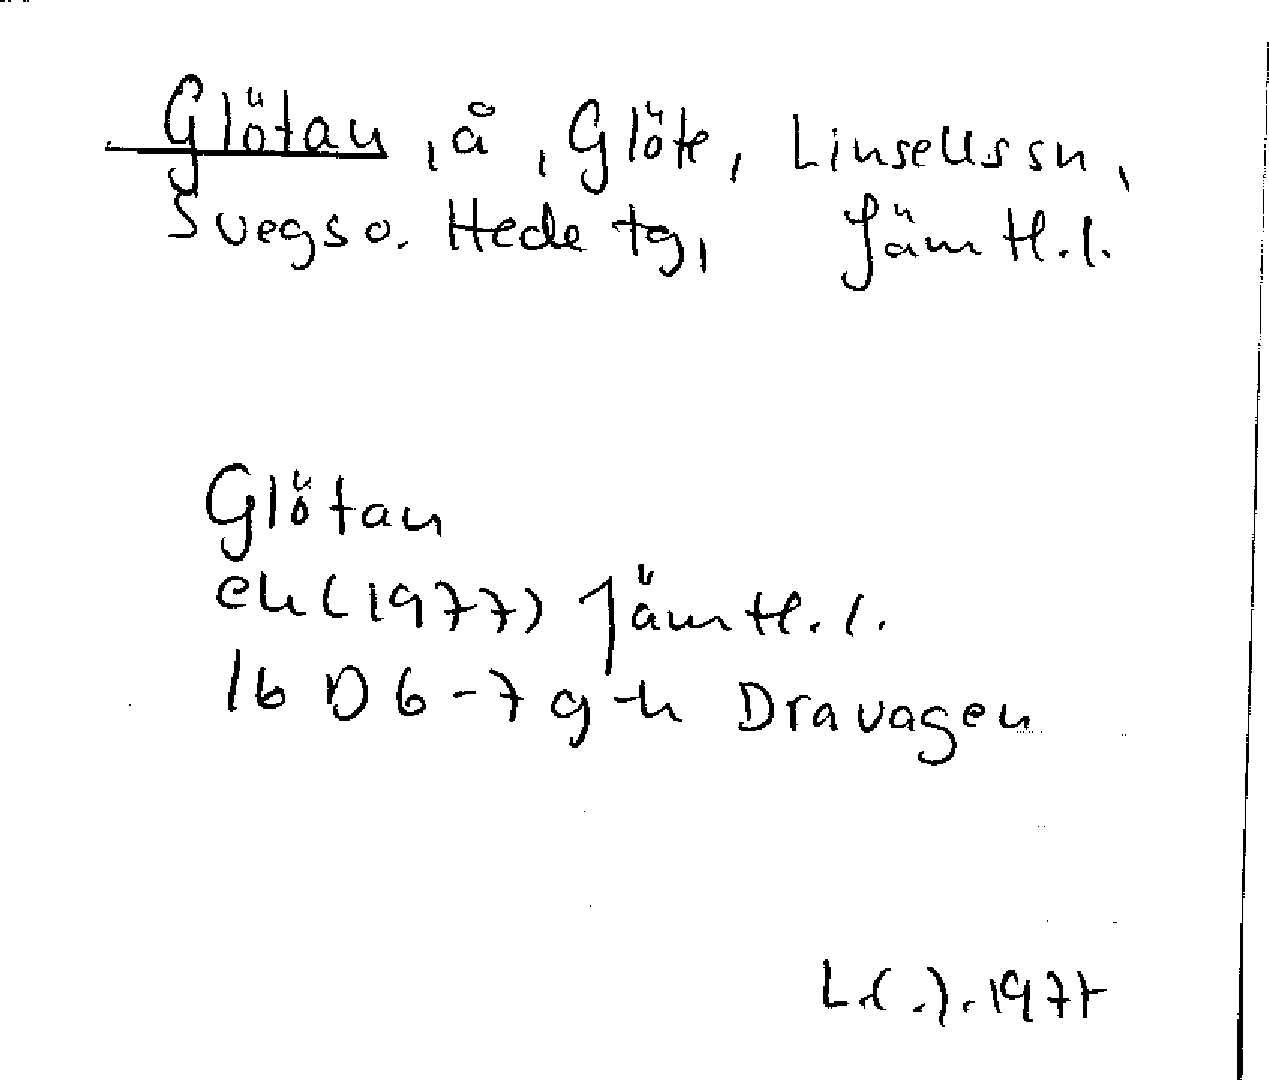 Glötan, å, Glöte, Linsells sn,
Svegs o. Hede tg, Jämtl. l.
Glötan
ek (1977) Jämtl. l.
16 D 6-7 g-h Dravagen
L.(.). 1977